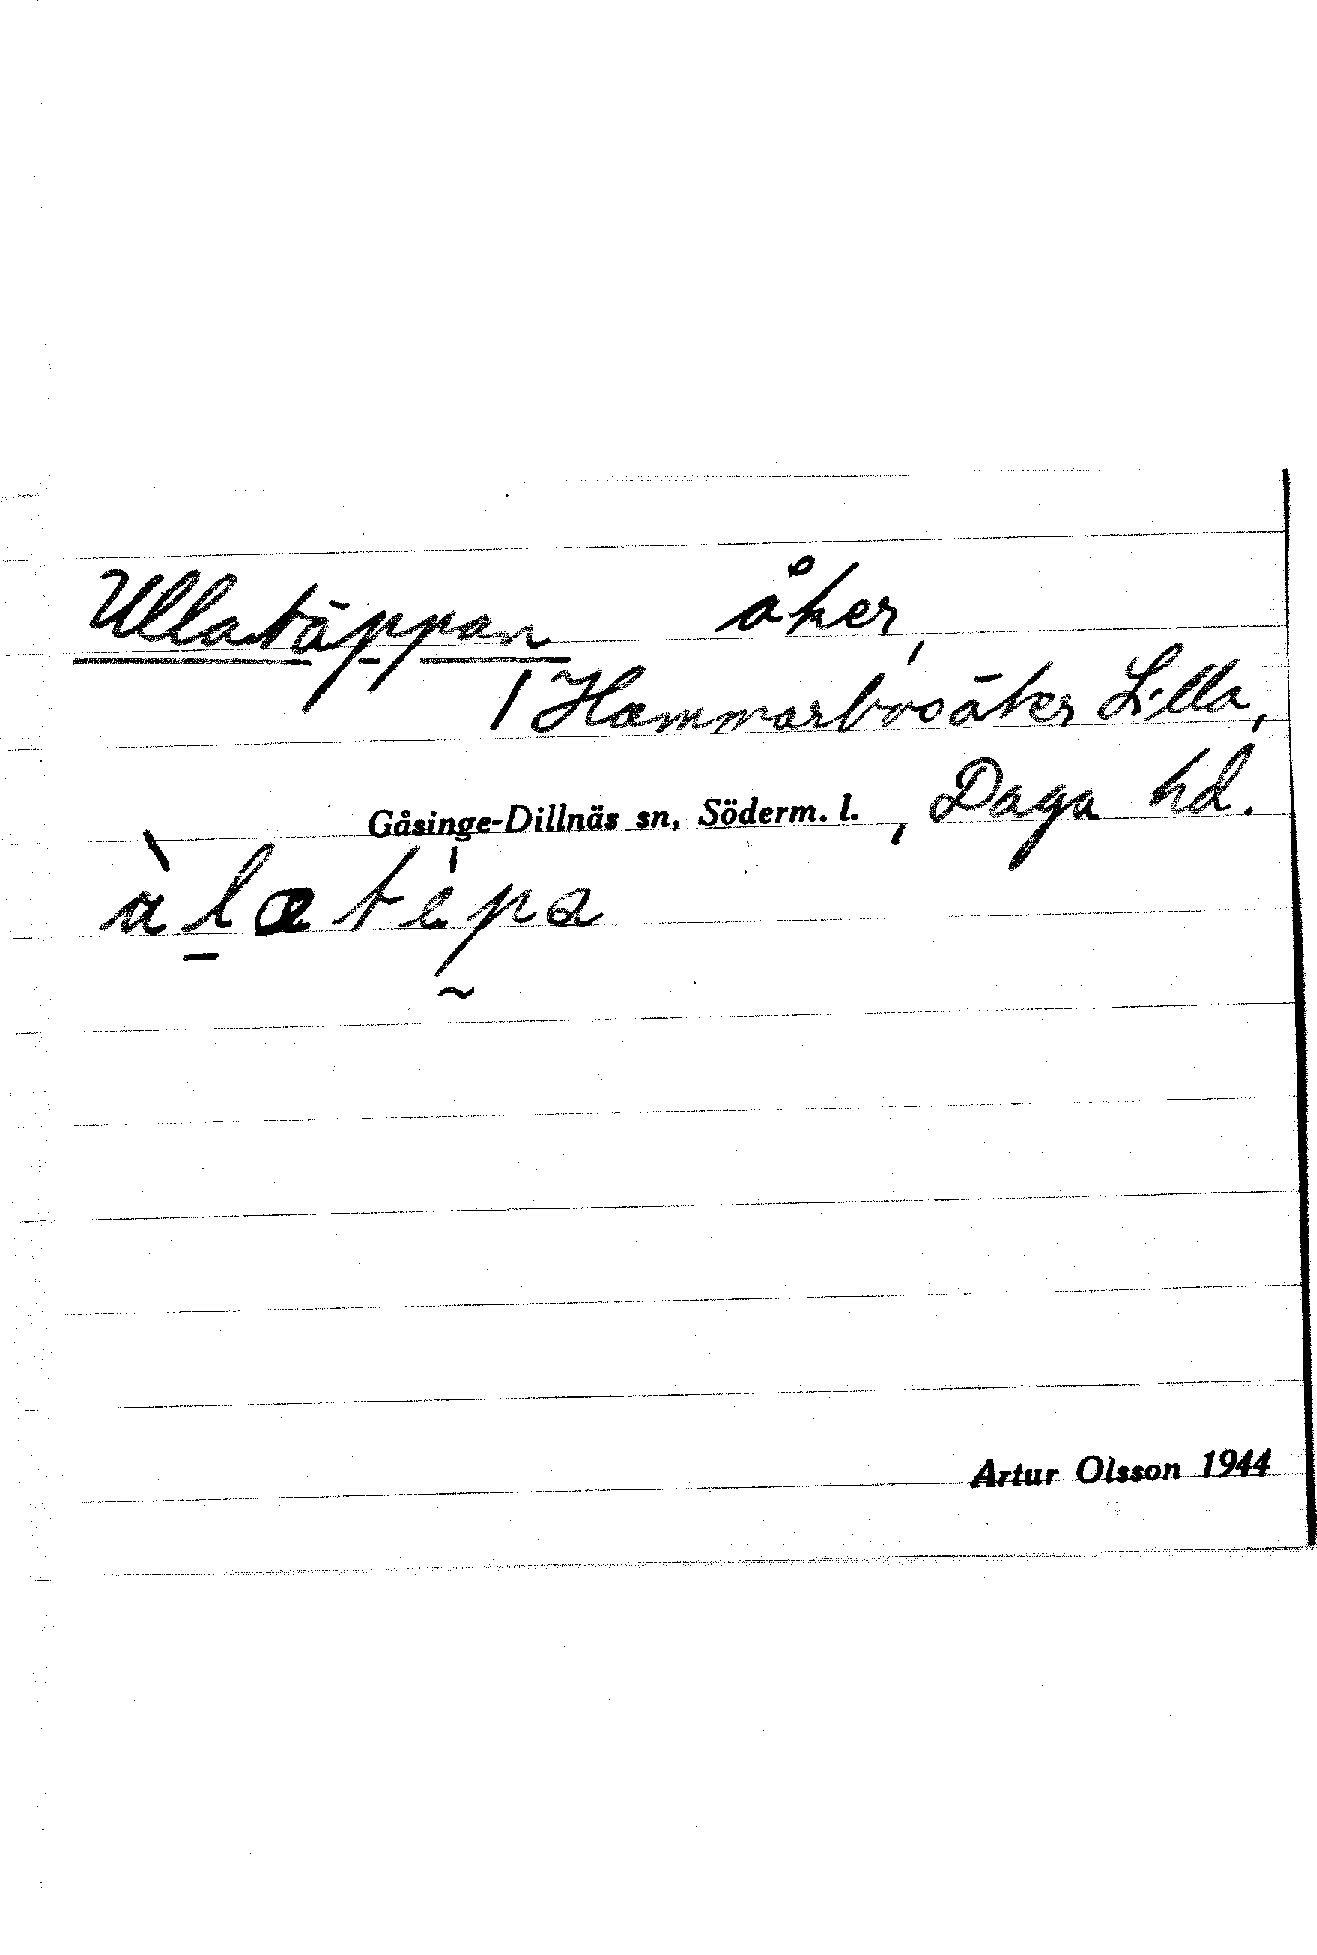 Ullatäppan åker,
/ Hammarbosäter Lilla,
Gåsinge-Dillnäs sn, Söderm. l., Daga hd.
Artur Olsson 1944